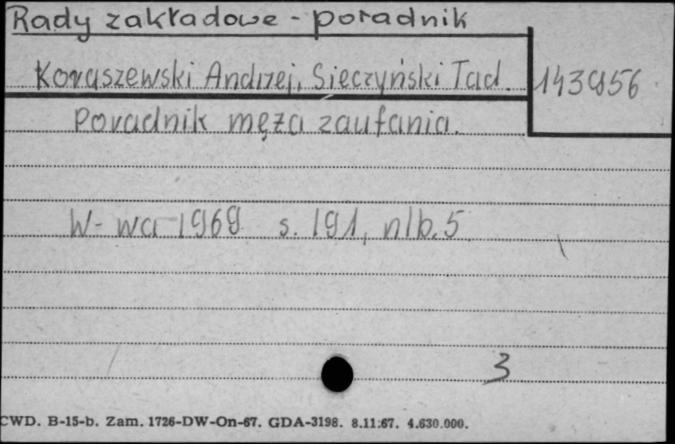 Rady zakładowe - poradnik
Koraszewski Andrzej, Sieczyński Tad. 143956
Poradnik męża zaufania.
W-wa 1969 s. 191, nlb. 5
3
CWD. B-15-b. Zam. 1726-DW-On-67. GDA-3198. 8.11.67. 4.630.000.